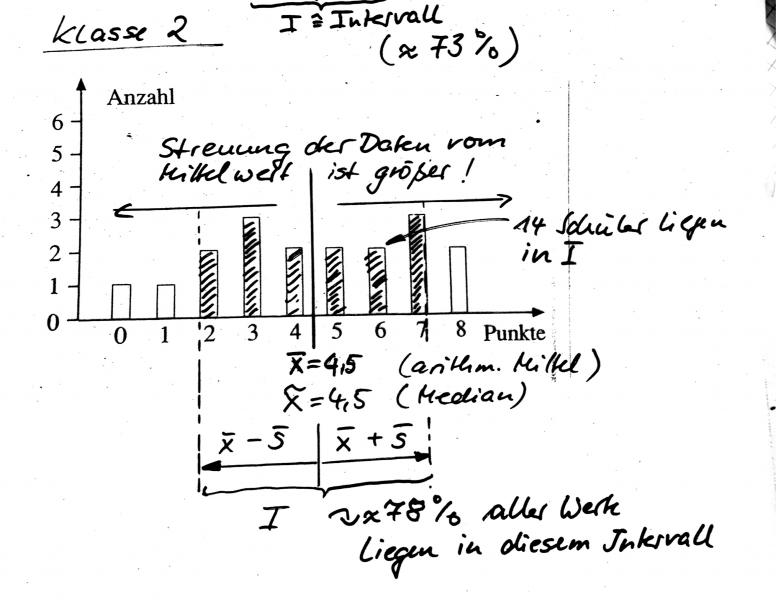 I ≙ Intervall
(≈ 73 %)
Klasse 2
Anzahl
6
5
4
3
2
1
0
Streuung der Daten vom
Mittelwert ist größer !
14 Schüler liegen
in I
0 1 2 3 4 5 6 7 8 Punkte
x̄ = 4,5 (arithm. Mittel)
x̃ = 4,5 (Median)
x̄ - s̄ x̄ + s̄
I ≈ 78 % aller Werte
liegen in diesem Intervall